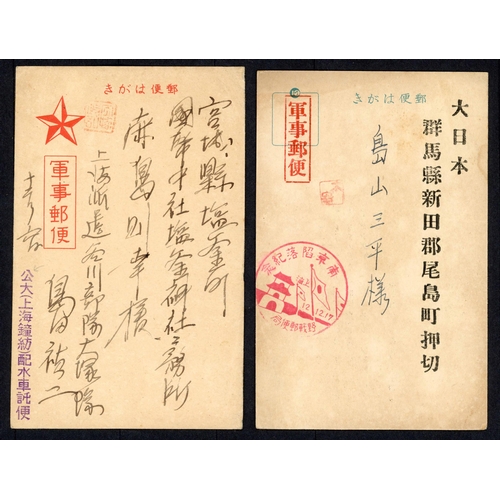 郵便はがき
宮城縣塩釜町
國幣中社塩釜神社社務所
上海派遣谷川部隊大塚隊
軍事郵便
公大上海鐘紡配水車託便
郵便はがき
大日本
群馬縣新田郡尾島町押切
島山三平様
軍事郵便
南京陷落紀念
12.12.17
野戰郵便局